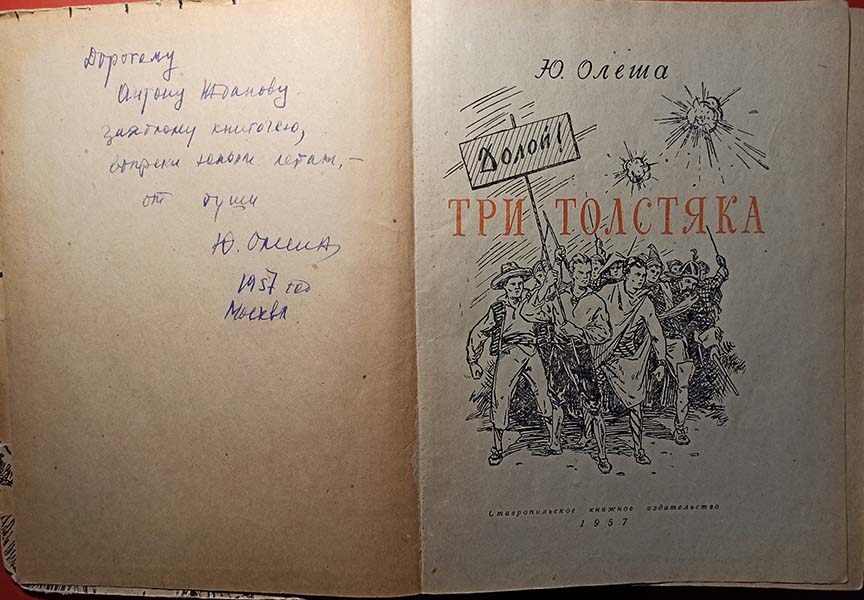 Дорогому
Антону Жданову –
заядлому книгочею,
вопреки юным летам, –
от души
Ю. Олеша
1957 год
Москва
Ю. Олеша
Долой!
ТРИ ТОЛСТЯКА
Ставропольское книжное издательство
1957